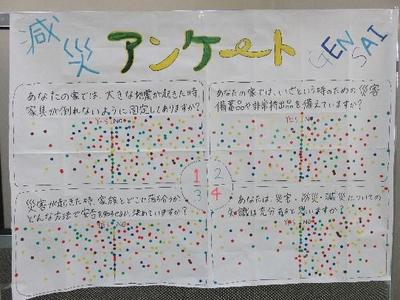 減災アンケート GENSAI
あなたの家では、大きな地震が起きた時
家具が倒れないように固定してありますか?
YES NO
あなたの家では、いざという時のための災害
備蓄品や非常持出品を備えていますか?
YES NO
1 2
3 4
災害が起きた時、家族とどこで落ち合うか
どんな方法で安否を決めていますか?
あなたは、災害・防災・減災についての
知識は充分あると思いますか?
YES NO